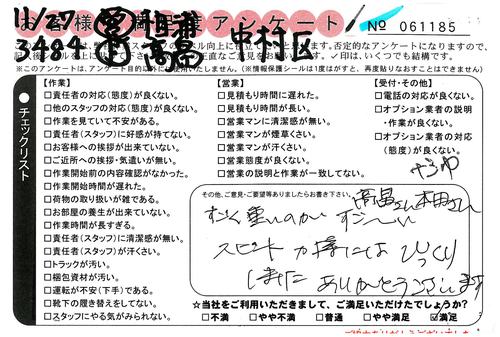 11/27
お客様満足度アンケート
№ 061185
3484
中村区
※このアンケートは、アンケート目的以外には使用いたしません。(※情報保護シールは1度はがすと、再度貼りなおすことはできません)
チェックリスト
【作業】
□責任者の対応(態度)が良くない。
□他のスタッフの対応(態度)が良くない。
□作業を見ていて不安がある。
□責任者(スタッフ)に好感が持てない。
□お客様への挨拶が出来ていない。
□ご近所への挨拶・気遣いが無い。
□作業開始前の内容確認がなかった。
□作業開始時間が遅れた。
□荷物の取り扱いが雑である。
□お部屋の養生が出来ていない。
□作業時間が長すぎる。
□責任者(スタッフ)に清潔感が無い。
□責任者(スタッフ)が汗くさい。
□トラックが汚い。
□梱包資材が汚い。
□運転が不安(下手)である。
□靴下の履き替えをしてない。
□スタッフにやる気がみられない。
【営業】
□見積もり時間に遅れた。
□見積もり時間が長い。
□営業マンに清潔感が無い。
□営業マンが煙草くさい。
□営業マンが汗くさい。
□営業態度が良くない。
□営業の説明と作業が一致してない。
【受付・その他】
□電話の対応が良くない。
□オプション業者の説明
・作業が良くない。
□オプション業者の対応
(態度)が良くない。
その他、ご意見・ご要望等ありましたらお書き下さい。
高畠さん 本田さん
すごく重いのが すごーい
スピード 力持には びっくり
しました ありがとうございます
☆当社をご利用いただきまして、ご満足いただけたでしょうか?
□不満 □やや不満 □普通 □やや満足 ☑満足